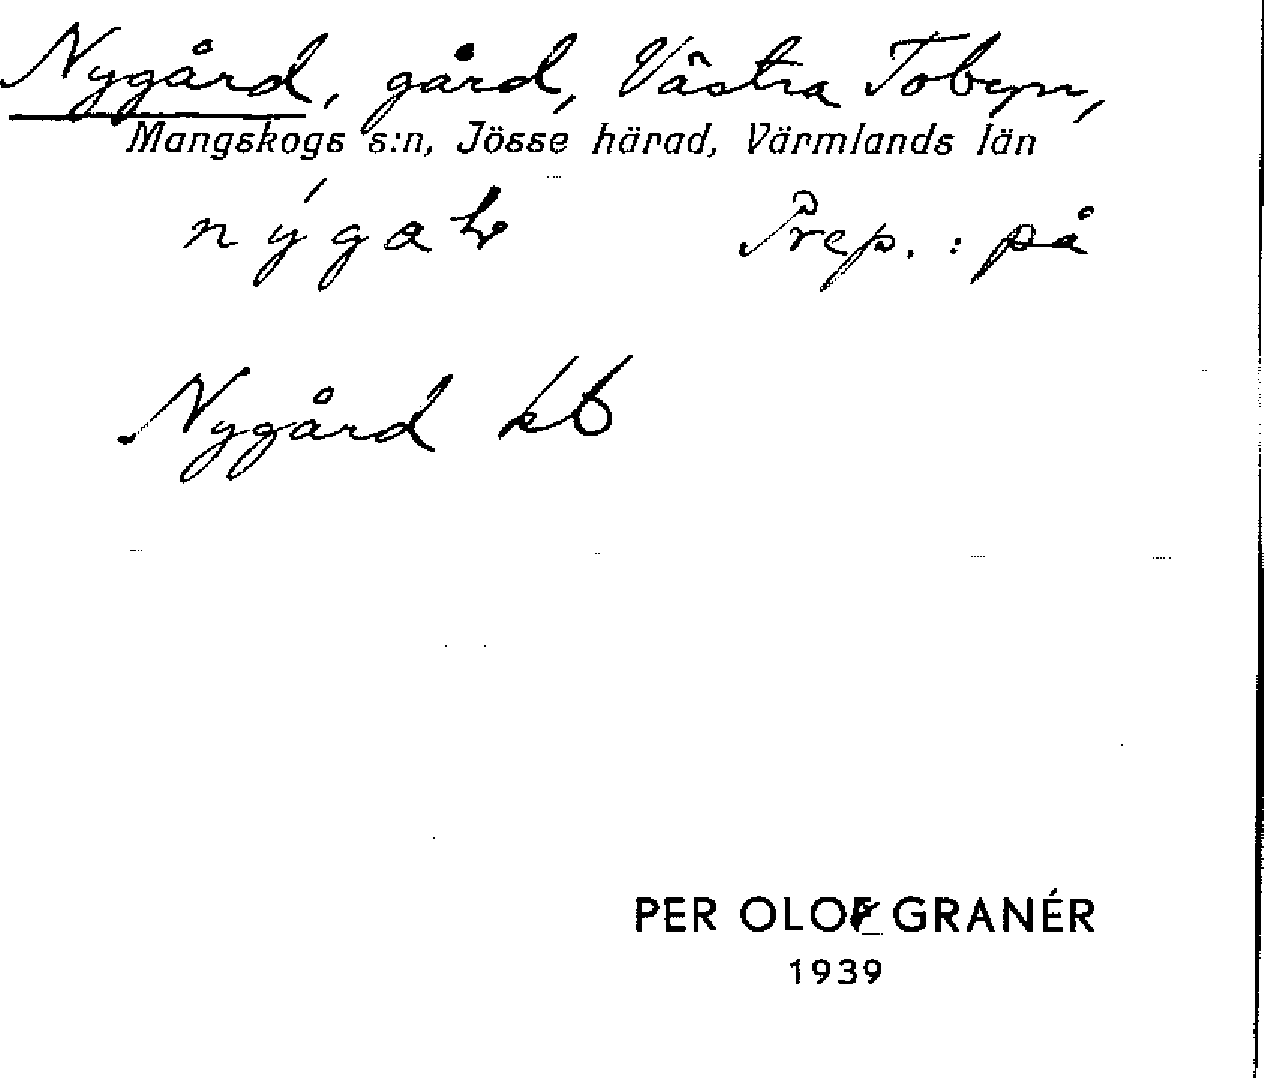 Nygård, gård, Västra Tobyn,
Mangskogs s:n, Jösse härad, Värmlands län
Prep. : på
Nygård kb
PER OLOF GRANÉR
1939